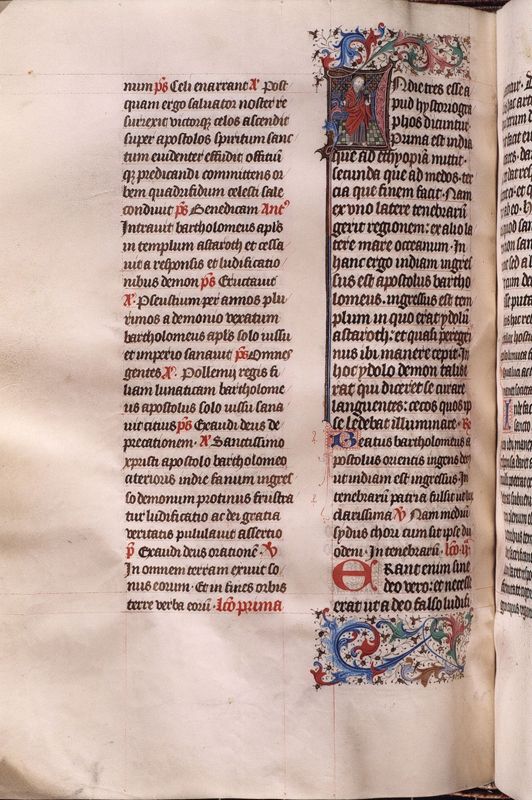 num ps Celi enarrant A Post
quam ergo saluator noster re
surrexit victorq; celos ascendit
super apostolos spiritum sanc
tum euidenter effudit officiū
q; predicandi committens or
bem quadrifidum celesti sale
condiuit ps Benedicam Ant⁹
Intrauit bartholomeus apl's
in templum astaroth et cessa
uit a responsis et ludificatio
nibus demon ps Eructauit
A Pseustium per annos plu
rimos a demonio vexatum
bartholomeus apl's solo iussu
et imperio sanauit ps Omnes
gentes A Pollemii regis fi
liam lunaticam bartholome
us apostolus solo iussu sana
uit citius ps Exaudi deus de
precationem A Sanctissimo
xpristi apostolo bartholomeo
citerioris indie fanum ingres
so demonum protinus frustra
tur ludificatio ac dei gratia
veritatis pululauit assertio
p Exaudi deus orationē V
In omnem terram exiuit so
nus eorum Et in fines orbis
terre verba eorū Lco prima
Indie tres esse a
pud hystoriogra
phos dicuntur
Prima est india
que ad ethyopiā mittit
secunda que ad medos ter
cia que finem facit Nam
ex vno latere tenebrarū
gerit regionem: ex alio la
tere mare occeanum In
hanc ergo indiam ingres
sus est apostolus bartho
lomeus. ingressus est tem
plum in quo erat ydolū
astaroth: et quasi peregri
nus ibi manere cepit In
hoc ydolo demon talis
rat qui diceret se curare
languentes: cecos quos ip
se ledebat illuminare Re
Beatus bartholomeus a
postolus orientis ingens
ut indiam est ingressus In
tenebrarū patria fulsit ut lux
clarissima V Nam mediū
sydus chori cum sit ipse du
odeni In tenebrarū lco ij
Erant enim sine
deo vero: et necesse
erat ut a deo falso ludifi